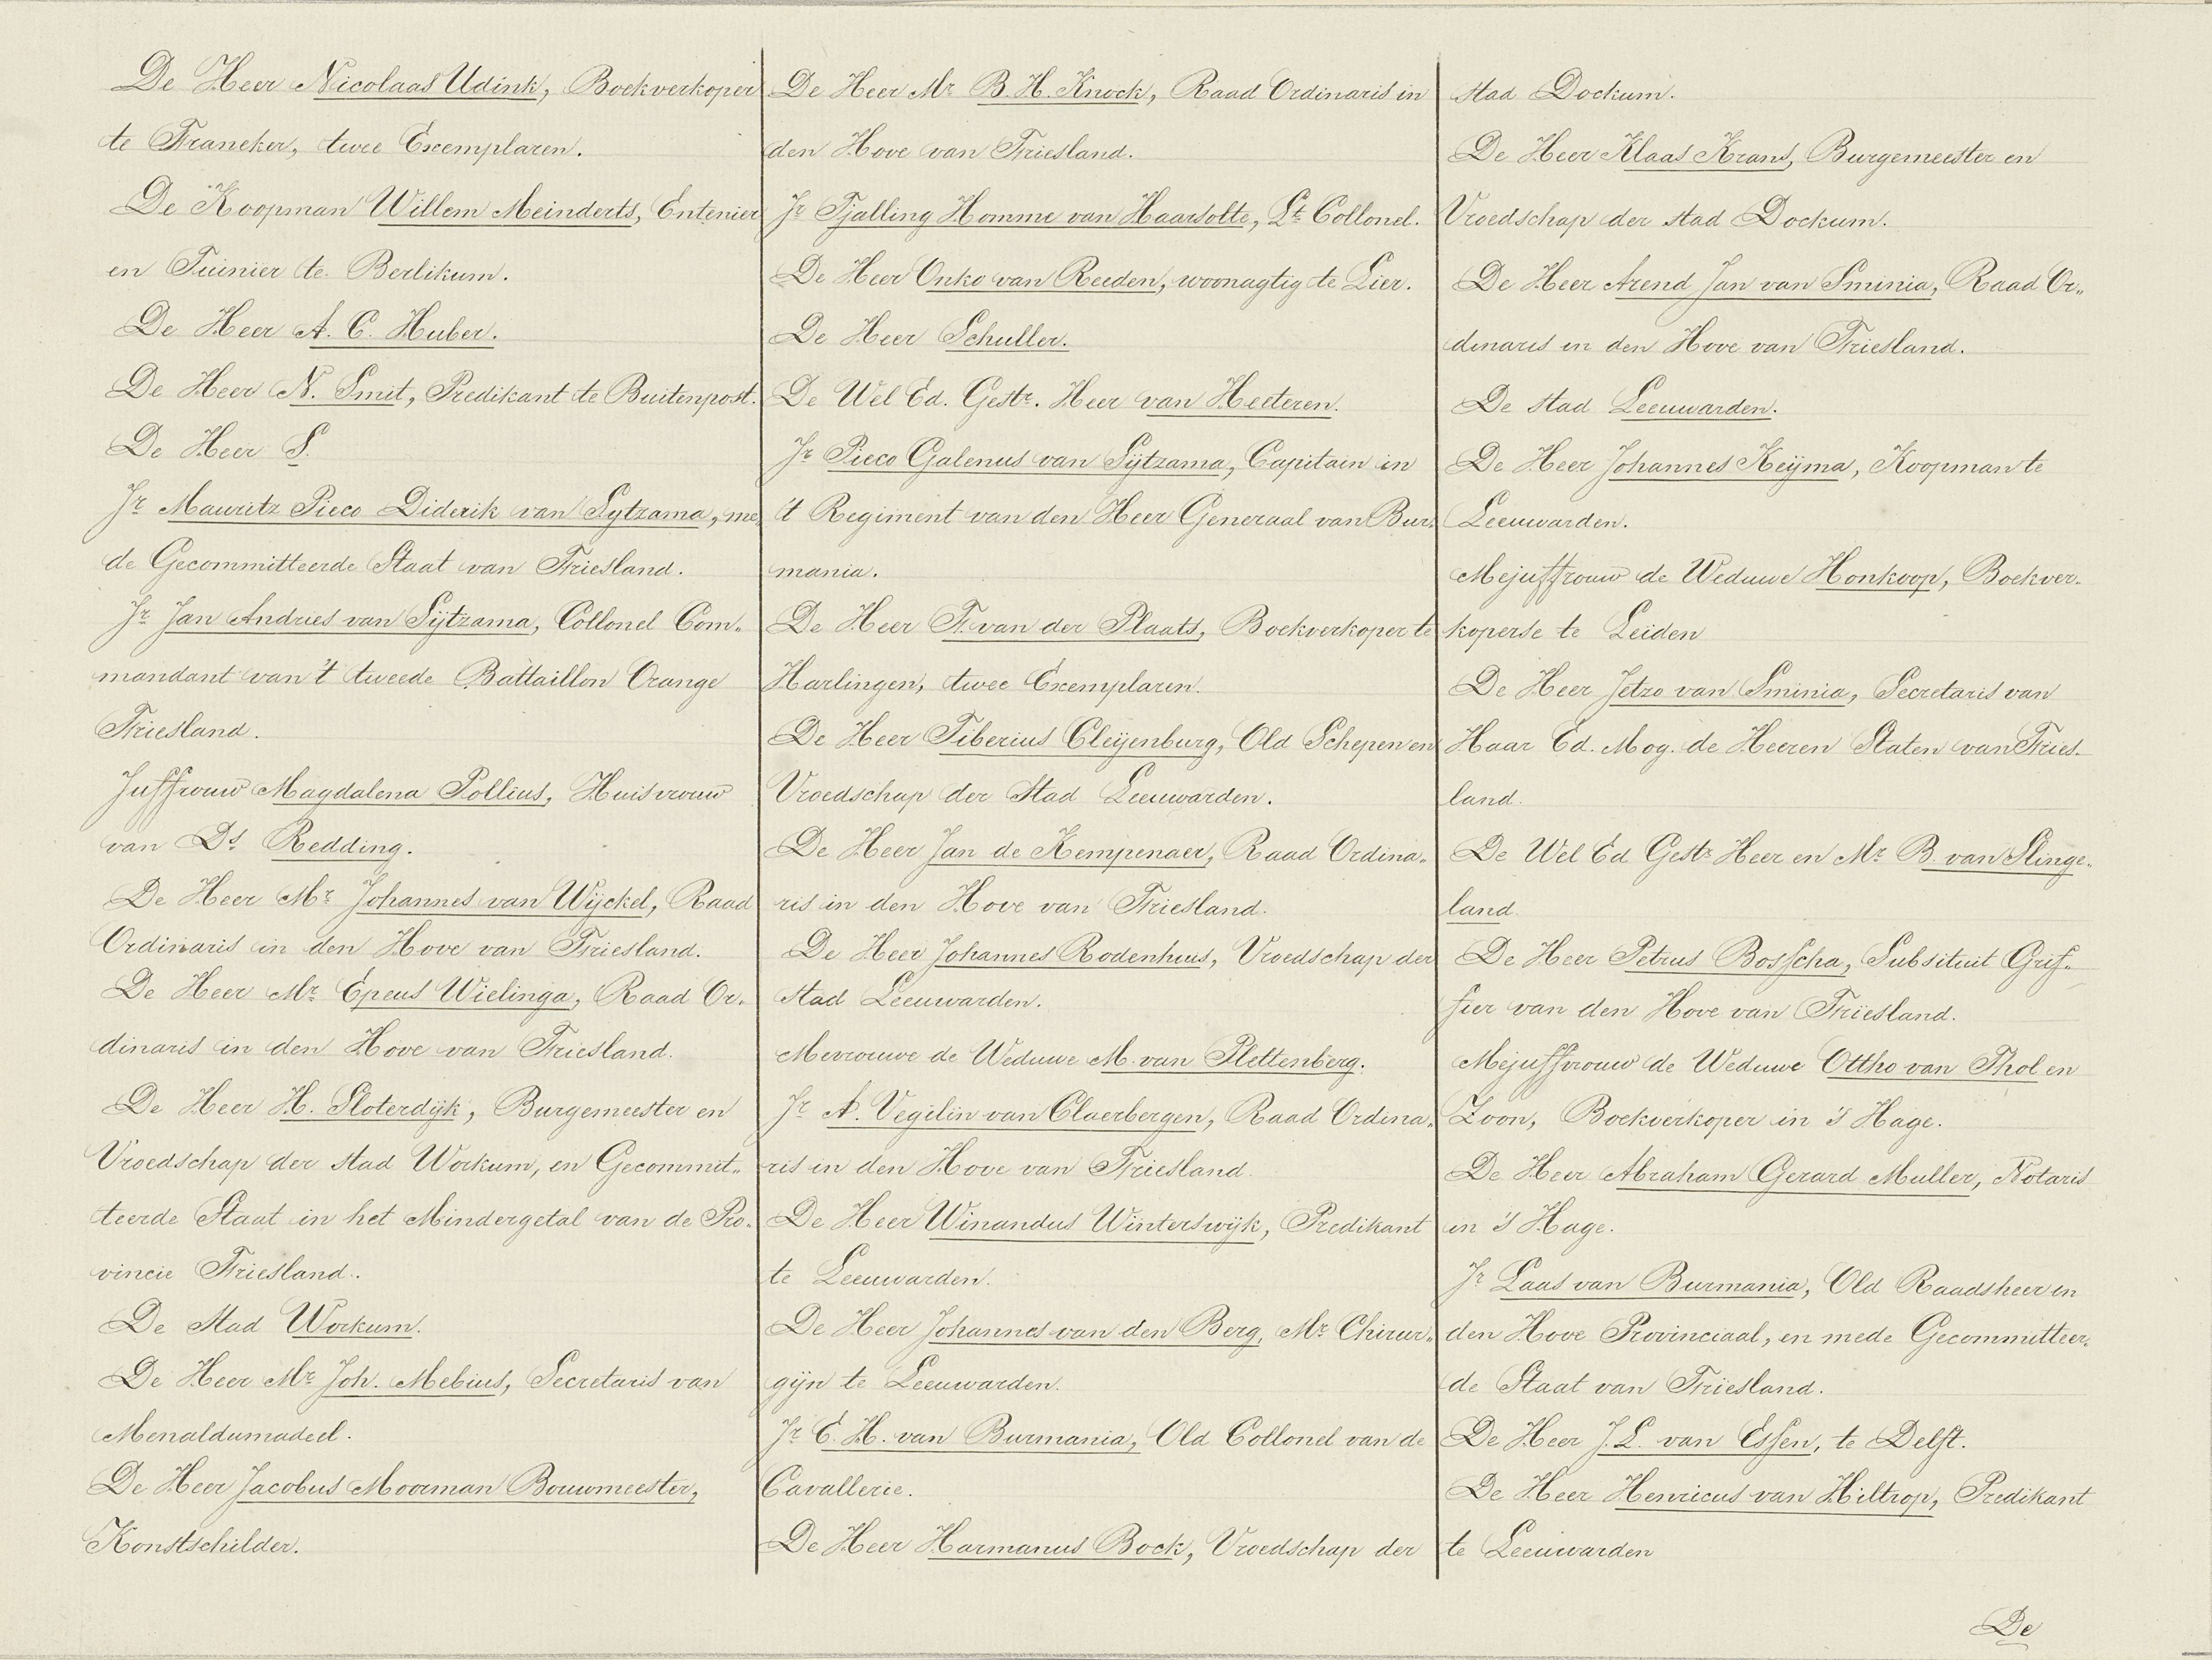 De Heer Nicolaas Udink, Boekverkoper
te Franeker, twee Exemplaren.
De Koopman Willem Meinderts, Entenier
en Tuinier te Berlikum.
De Heer A. C. Huber.
De Heer N. Smit, Predikant te Buitenpost.
De Heer S.
Jr. Mauritz Pieco Diderik van Sytzama, me„
de Gecommitteerde Staat van Friesland.
Jr. Jan Andries van Sijtzama, Collonel Com„
mandant van 't tweede Battaillon Orange
Friesland.
Juffrouw Magdalena Pollius, Huisvrouw
van Ds. Redding.
De Heer Mr. Johannes van Wijckel, Raad
Ordinaris in den Hove van Friesland.
De Heer Mr. Epeus Wielinga, Raad Or„
dinaris in den Hove van Friesland.
De Heer H. Sloterdijk, Burgemeester en
Vroedschap der stad Workum, en Gecommit„
teerde Staat in het Mindergetal van de Pro„
vincie Friesland.
De Stad Workum.
De Heer Mr. Joh. Mebius, Secretaris van
Menaldumadeel.
De Heer Jacobus Moorman Bouwmeester,
Konstschilder.
De Heer Mr. B. H. Knock, Raad Ordinaris in
den Hove van Friesland.
Jr. Tjalling Homme van Haarsolte, Lt. Collonel.
De Heer Onko van Reeden, woonagtig te Lier.
De Heer Schuller.
De Wel Ed. Gestr. Heer van Heeteren.
Jr. Pieco Galenus van Sijtzama, Capitain in
't Regiment van den Heer Generaal van Bur„
mania.
De Heer F. van der Plaats, Boekverkoper te
Harlingen, twee Exemplaren.
De Heer Tiberius Cleijenburg, Old Schepen en
Vroedschap der Stad Leeuwarden.
De Heer Jan de Kempenaer, Raad Ordina„
ris in den Hove van Friesland.
De Heer Johannes Rodenhuis, Vroedschap der
stad Leeuwarden.
Mevrouwe de Weduwe M. van Plettenberg.
Jr. A. Vegilin van Claerbergen, Raad Ordina„
ris in den Hove van Friesland.
De Heer Winandus Winterswijk, Predikant
te Leeuwarden.
De Heer Johannes van den Berg, Mr. Chirur„
gijn te Leeuwarden.
Jr. E. H. van Burmania, Old Collonel van de
Cavallerie.
De Heer Harmanus Bock, Vroedschap der
stad Dockum.
De Heer Klaas Krans, Burgemeester en
Vroedschap der stad Dockum.
De Heer Arend Jan van Sminia, Raad Or„
dinaris in den Hove van Friesland.
De stad Leeuwarden.
De Heer Johannes Keijma, Koopman te
Leeuwarden.
Mejuffrouw de Weduwe Honkoop, Boekver„
koperse te Leiden
De Heer Jetzo van Sminia, Secretaris van
Haar Ed. Mog. de Heeren Staten van Fries„
land.
De Wel Ed Gestr. Heer en Mr. B. van Slinge„
land.
De Heer Petrus Bosscha, Subsituit Grif„
fier van den Hove van Friesland.
Mejuffrouw de Weduwe Ottho van Thol en
Zoon, Boekverkoper in 's Hage.
De Heer Abraham Gerard Muller, Notaris
in 's Hage.
Jr. Laas van Burmania, Old Raadsheer in
den Hove Provinciaal, en mede Gecommitteer„
de Staat van Friesland.
De Heer J. L. van Essen, te Delft.
De Heer Henricus van Hiltrop, Predikant
te Leeuwarden
De